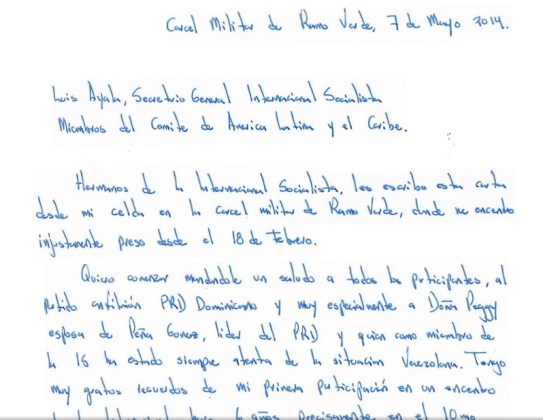 Carcel Militar de Ramo Verde, 7 de Mayo 2014.
Luis Ayala, Secretario General Internacional Socialista
Miembros del Comite de America Latina y el Caribe.
Hermanos de la Internacional Socialista, les escribo esta carta
desde mi celda en la carcel militar de Ramo Verde, donde me encuentro
injustamente preso desde el 18 de Febrero.
Quiero comenzar mandandole un saludo a todos los participantes, al
partido anfitrión PRD Dominicano y muy especialmente a Doña Peggy
esposa de Peña Gomez, lider del PRD y quien como miembro de
la IS ha estado siempre atenta de la situacion Venezolana. Tengo
muy gratos recuerdos de mi primera participación en un encuentro
de la Internacional hace 6 años precisamente en el